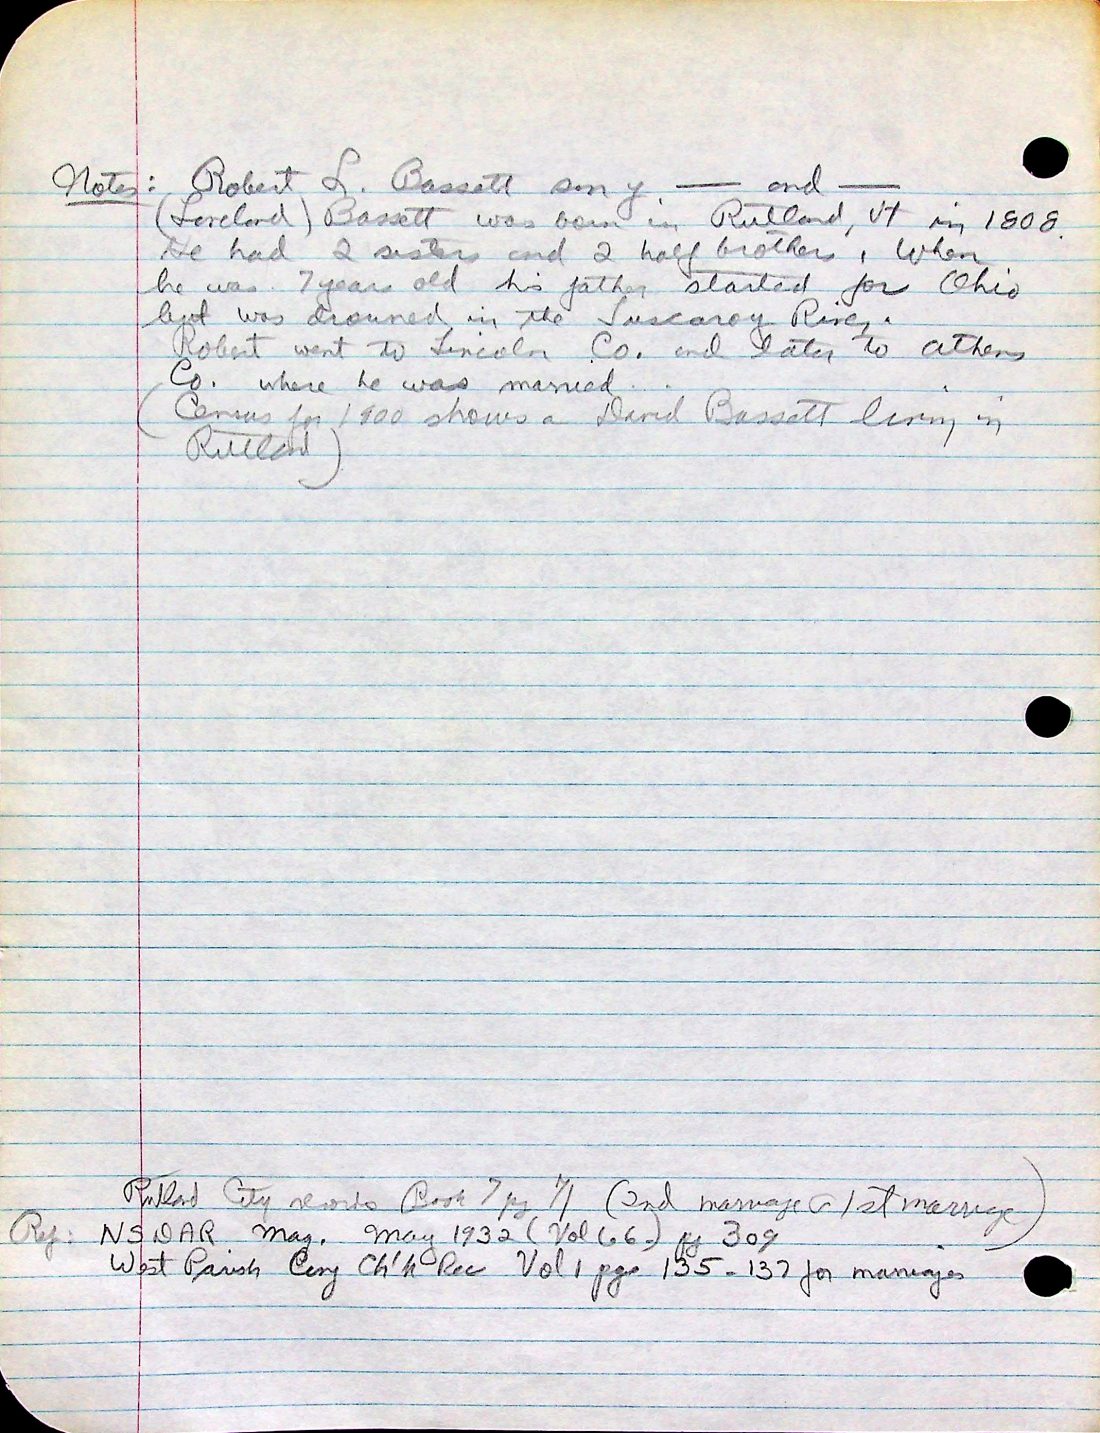 Notes: Robert L. Bassett son of — and —
(Loveland) Bassett was born in Rutland, Vt in 1808.
He had 2 sisters and 2 half brothers, When
he was 7 years old his father started for Ohio
but was drowned in the Tuscaroy River.
Robert went to Lincoln Co. and later to Athens
Co. where he was married...
(Census for 1800 shows a David Bassett living in
Rutland)
Rutland City records Book 7 pg 71 (2nd marriage & 1st marriage)
Ref: NSDAR Mag. May 1932 (Vol 66.) pg 309
West Parish Cong Ch'h Rec Vol 1 pgs 135-137 for marriages